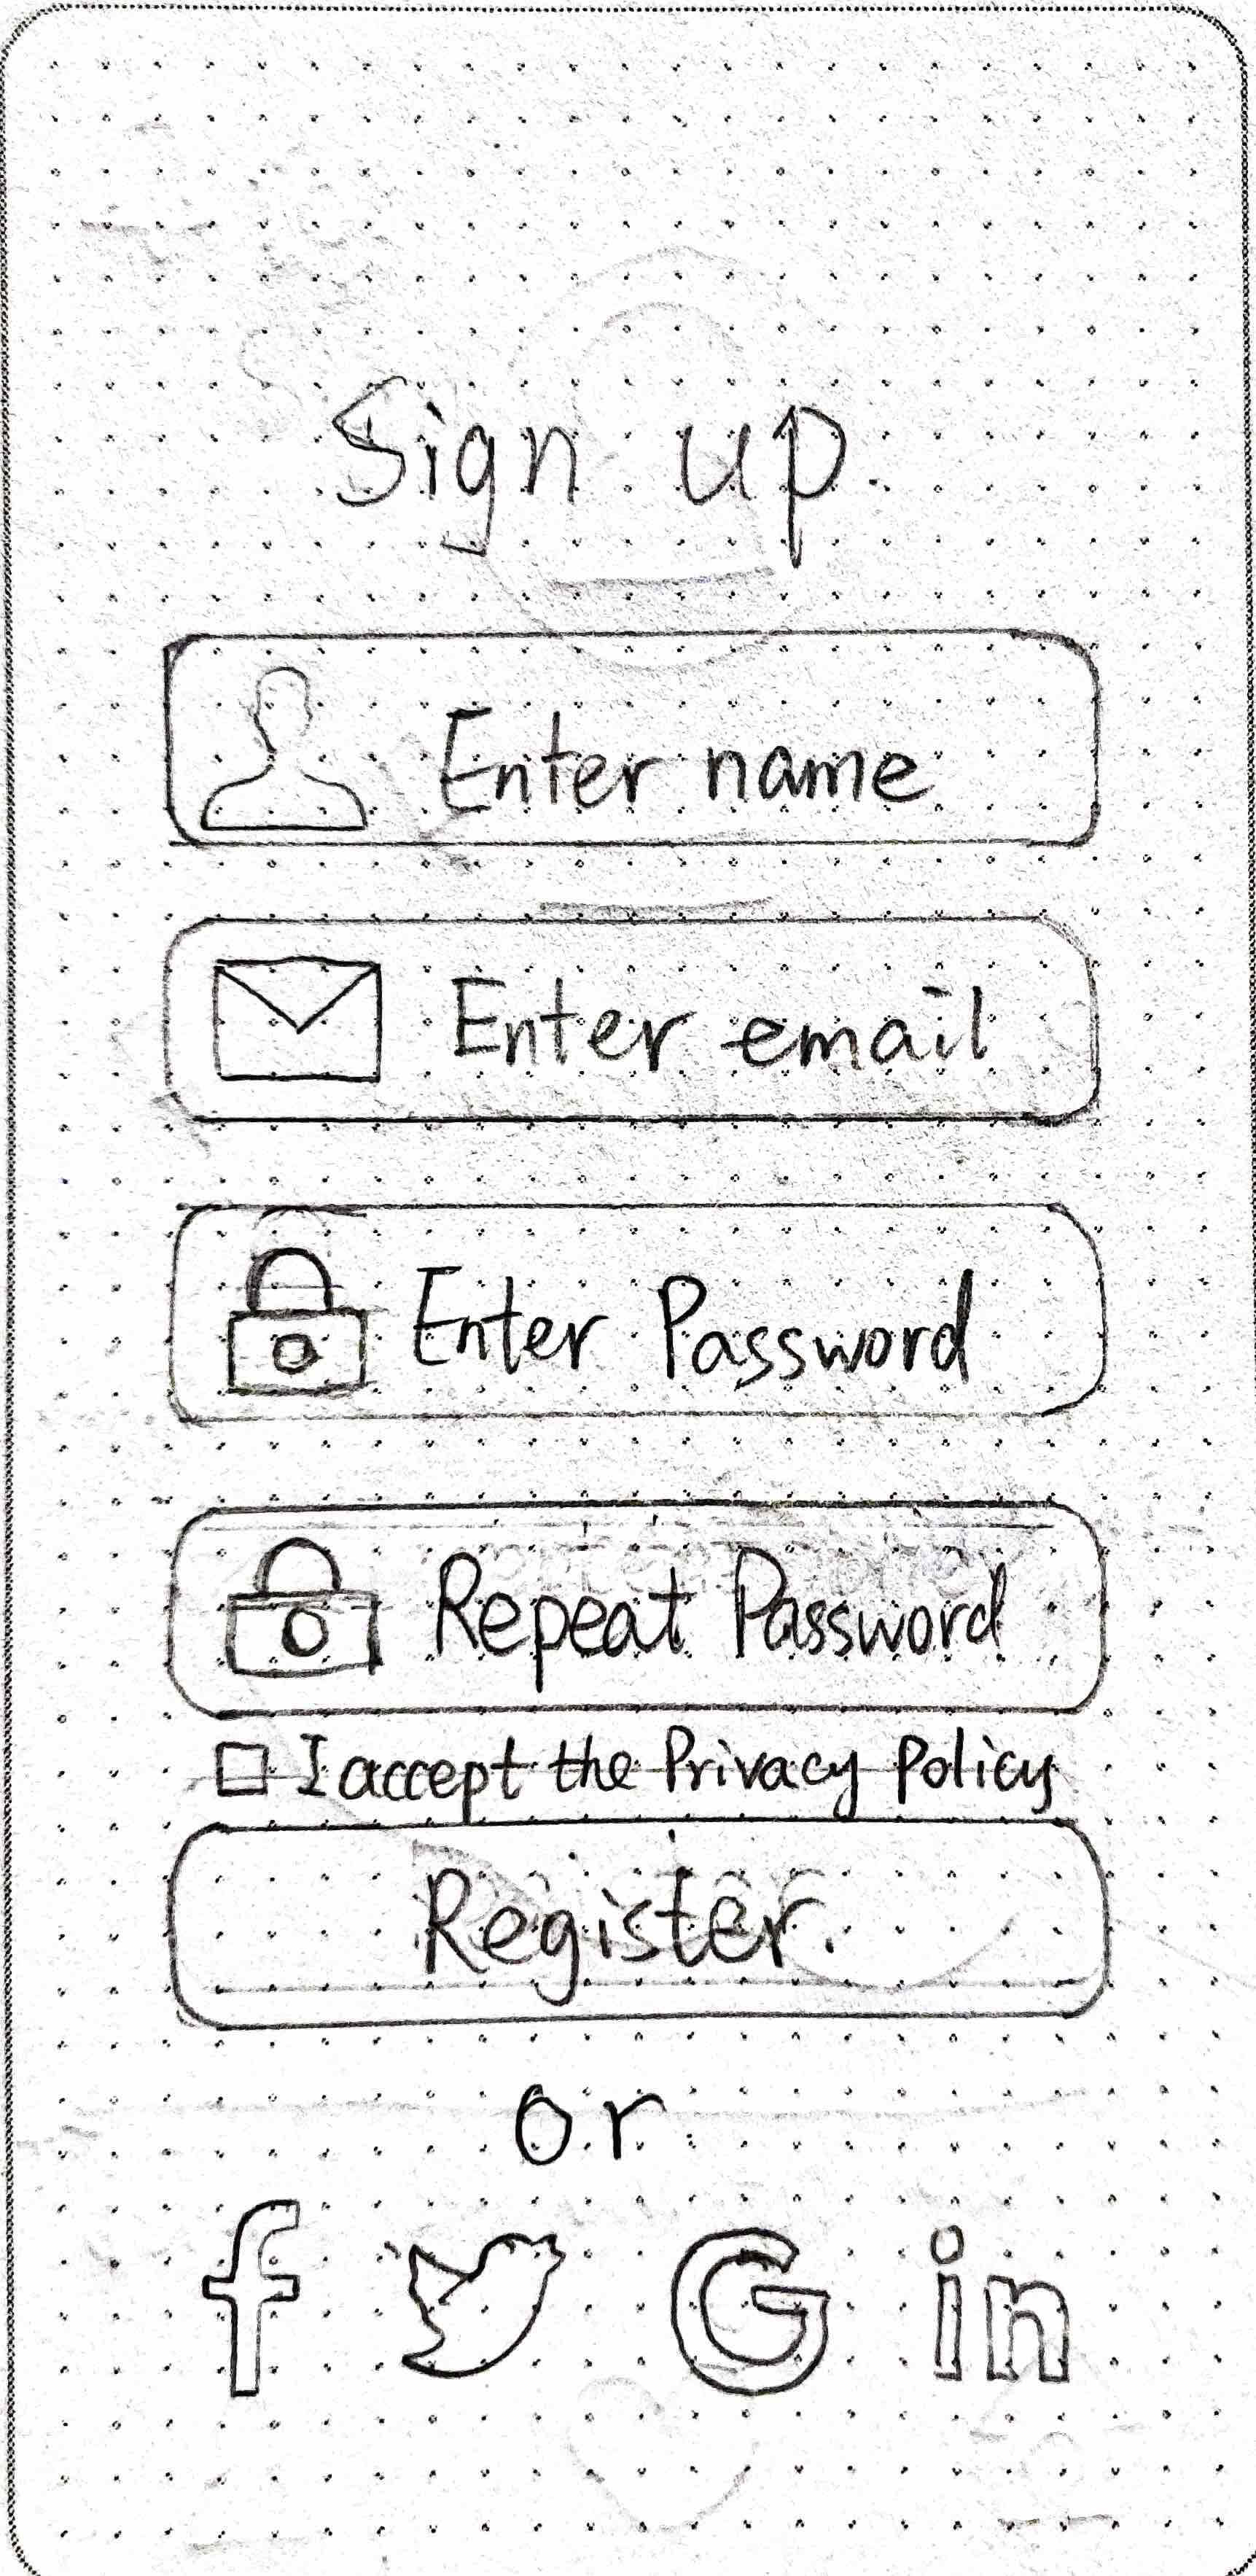 Sign up.
Enter name
Enter email
Enter Password
Repeat Password
I accept the Privacy Policy
Register.
or
f G in